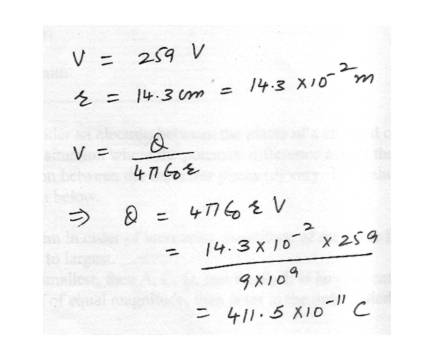 V = 259 V
r = 14.3 cm = 14.3 x 10^-2 m
V = Q / 4πϵ0r
⇒ Q = 4πϵ0 r V
= 14.3 x 10^-2 x 259 / 9x10^9
= 411.5 x10^-11 C